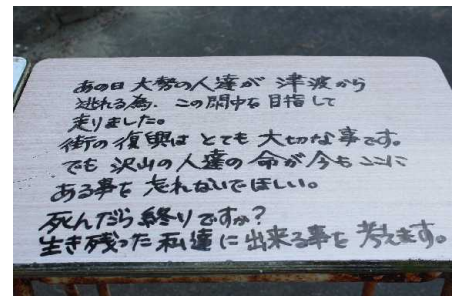 あの日 大勢の人達が 津波から
逃れる為、この閖上を目指して
走りました。
街の復興は とても 大切な事です。
でも 沢山の人達の 命が今も ここに
ある事を 忘れないでほしい。
死んだら終りですか？
生き残った私達に出来る事を 考えます。